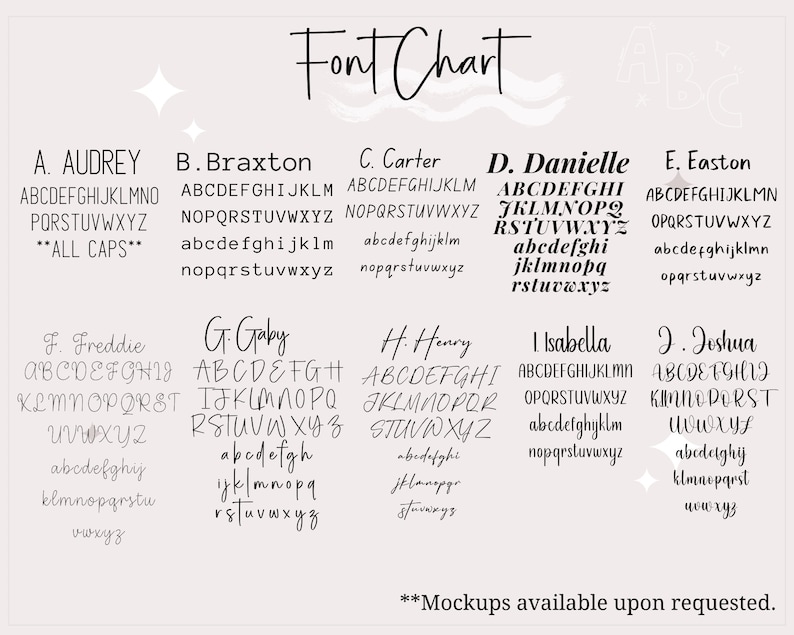 Font Chart
ABC
A. AUDREY
ABCDEFGHIJKLMNO
PQRSTUVWXYZ
**ALL CAPS**
B. Braxton
ABCDEFGHIJKLM
NOPQRSTUVWXYZ
abcdefghijklm
nopqrstuvwxyz
C. Carter
ABCDEFGHIJKLM
NOPQRSTUVWXYZ
abcdefghijklm
nopqrstuvwxyz
D. Danielle
ABCDEFGHI
JKLMNOPQ
RSTUVWXYZ
abcdefghi
jklmnopq
rstuvwxyz
E. Easton
ABCDEFGHIJKLMN
OPQRSTUVWXYZ
abcdefghijklmn
opqrstuvwxyz
F. Freddie
ABCDEFGHIJ
KLMNOPQRST
UVWXYZ
abcdefghij
klmnopqrstu
vwxyz
G. Gaby
ABCDEFGH
IJKLMNOPQ
RSTUVWXYZ
abcdefgh
ijklmnopq
rstuvwxyz
H. Henry
ABCDEFGHI
JKLMNOPQR
STUVWXYZ
abcdefghi
jklmnopqr
stuvwxyz
I. Isabella
ABCDEFGHIJKLMN
OPQRSTUVWXYZ
abcdefghijklm
nopqrstuvwxyz
J. Joshua
ABCDEFGHIJ
KLMNOPQRST
UVWXYZ
abcdefghij
klmnopqrst
uvwxyz
**Mockups available upon requested.